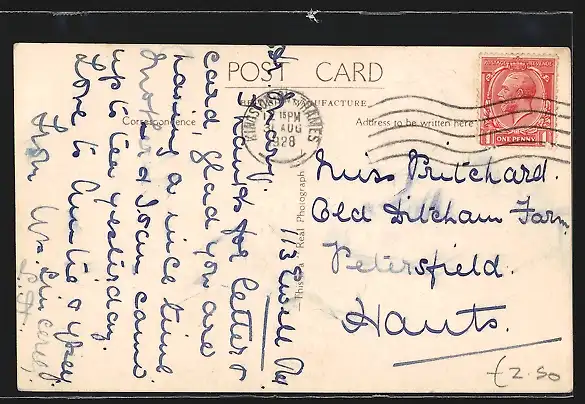 POST CARD
MANUFACTURE.
Correspondence
Address to be written here
POSTAGE REVENUE
ONE PENNY
KINGSTON THAMES
15 PM
AUG
1928
This is a Real Photograph
113 Ewell Rd
Thanks for letter &
card, glad you are
having a nice time
Mother & Joan came
up to tea yesterday.
Love to Auntie & yrself
From
Miss Pritchard.
Old Ditcham Farm
Petersfield.
Hants.
£2.50